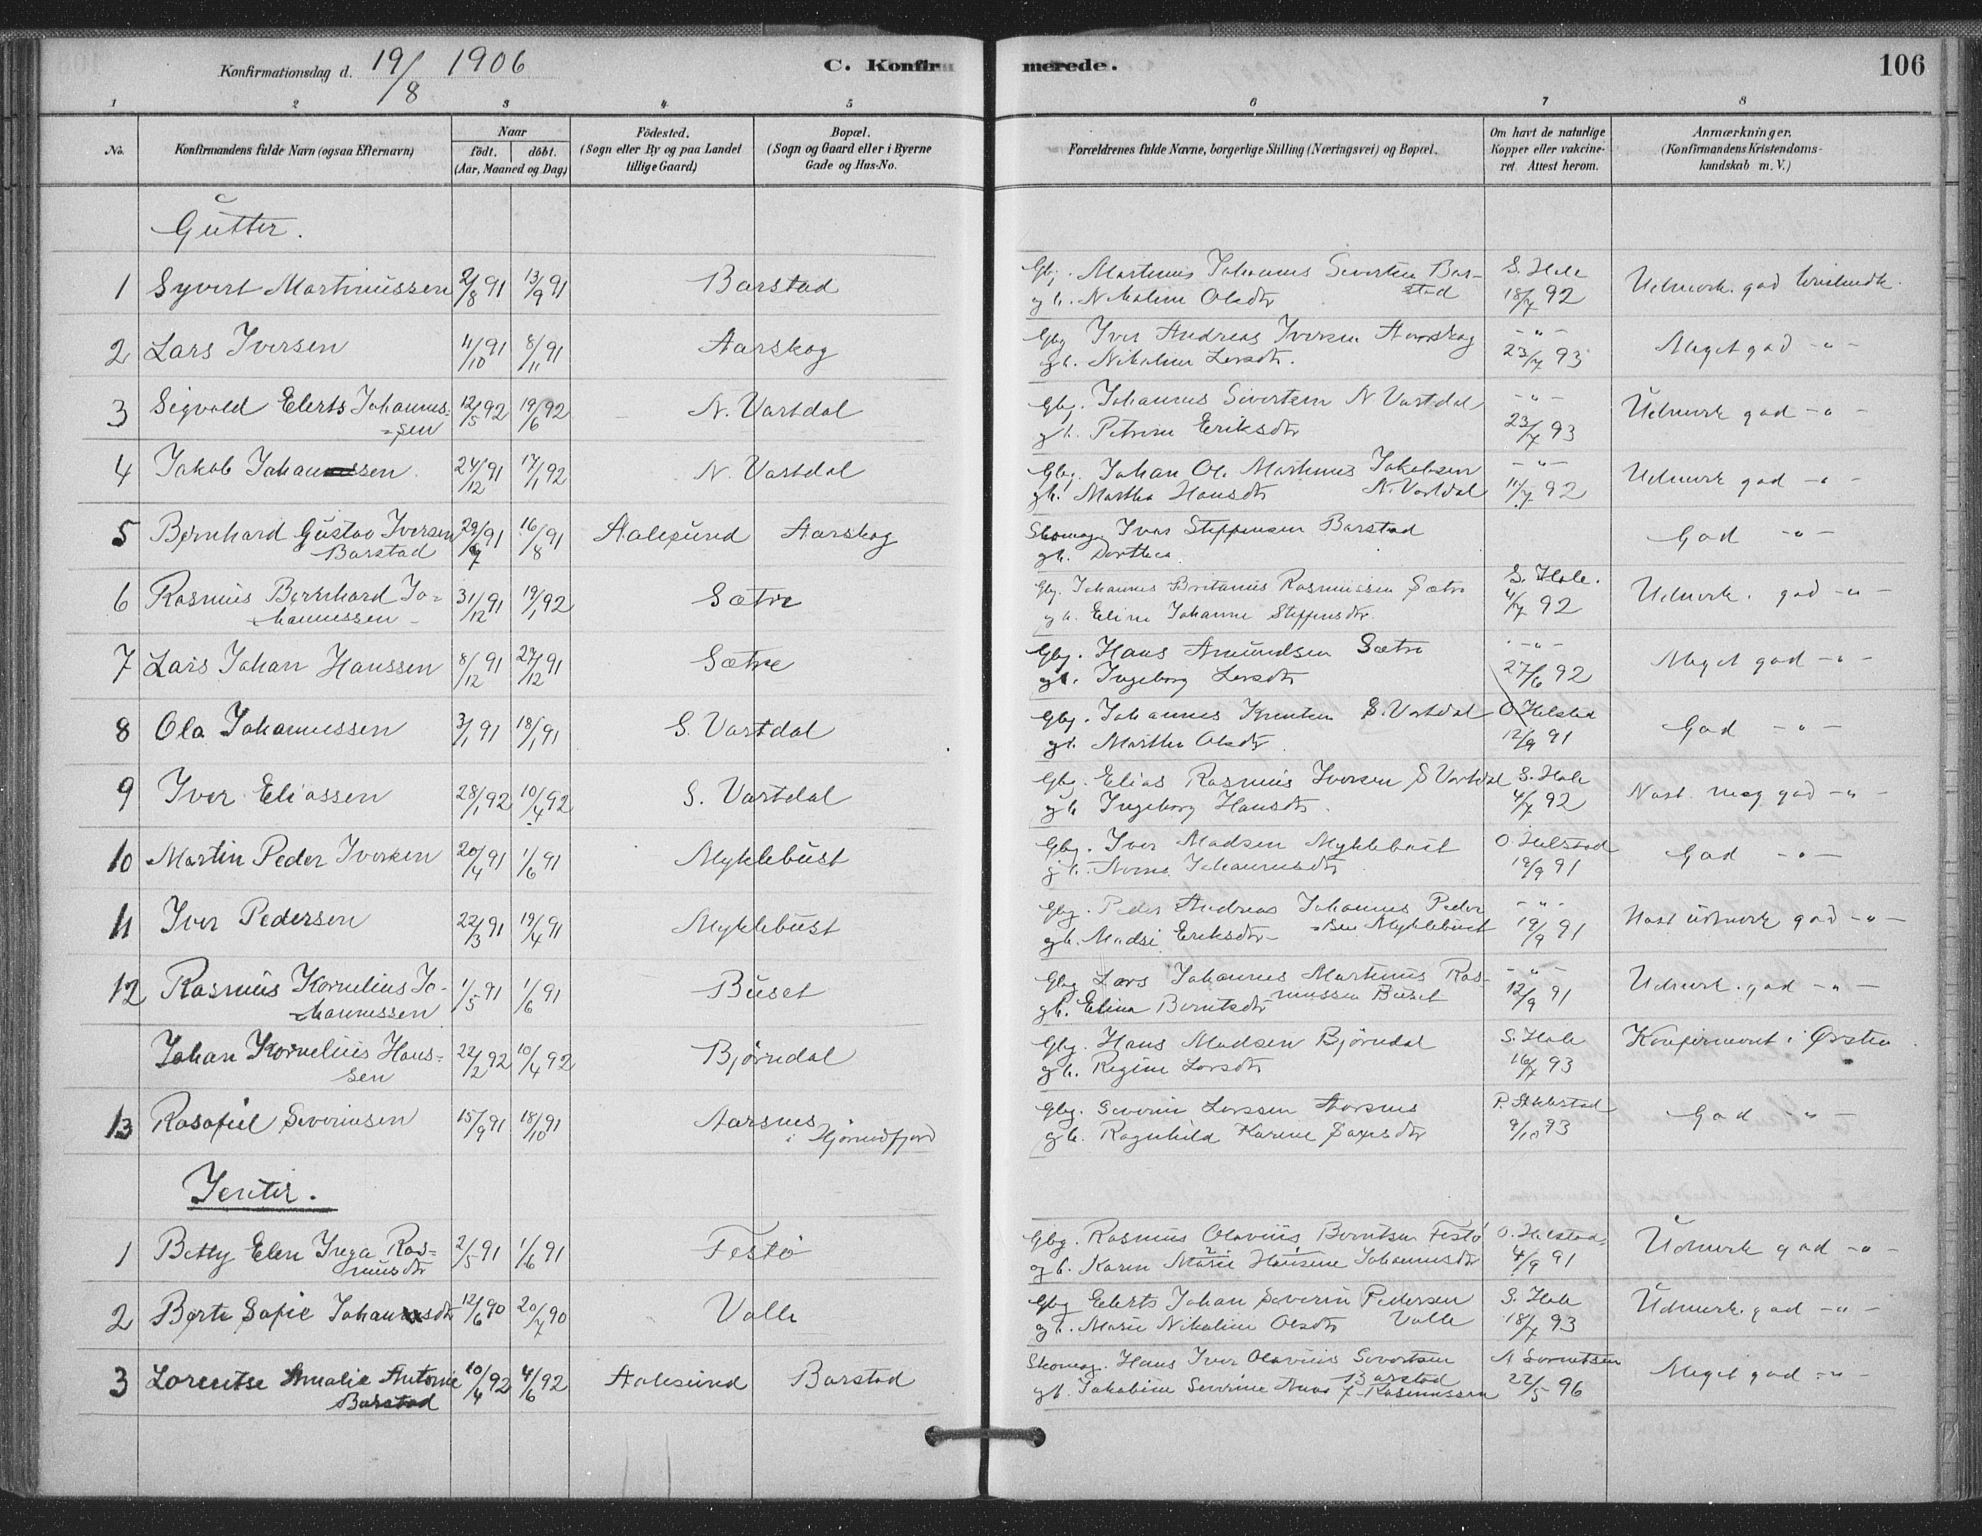 Konfirmationsdag d. 19/8 1906 C. Konfirmerede. 106
1 2 3 4 5 6 7 8
No. Konfirmandens fulde Navn (ogsaa Efternavn) Naar födt. döbt. (Aar, Maaned og Dag) Födested. (Sogn eller By og paa Landet tillige Gaard) Bopæl. (Sogn og Gaard eller i Byerne Gade og Hus-No. Forældrenes fulde Navne, borgerlige Stilling (Næringsvei) og Bopæl. Om havt de naturlige Kopper eller vakcineret. Attest herom. Anmærkninger. (Konfirmandens Kristendomskundskab m. V.)
Gutter.
1 Syvert Martinussen 2/8 91 13/9 91 Barstad Gbj. Martinus Johannes Sivertsen Barstad S. Hole Udmerk. god kristendk.
og h. Nikoline Olsdtr 18/7 92
2 Lars Iversen 11/10 91 8/11 91 Aarskog Gbg Iver Andreas Iversen Aarskog -"- Meget god -"-
gh. Nikoline Larsdtr. 23/7 93
3 Sigvald Elerts Johannes- 12/5 92 19/6 92 N. Vartdal Gbg. Johannes Sivertsen N Vartdal -"- Udmerk god -"-
=sen gh. Petrine Eriksdtr 23/7 93
4 Jakob Johansen. 24/12 91 17/1 92 N. Vartdal Gbg. Johan Ol. Martinus Jakobsen -"- Udmerk god -"-
gh. Martha Hansdtr N. Vartdal 11/7 92
5 Bernhard Gustav Iversen 29/7 91 16/8 91 Aalesund Aarskog Skomag. Ivar Steffensen Barstad God -"-
Barstad gh. Dorthea
6 Rasmus Bernhard Jo- 31/12 91 19/1 92 Sætre Gbg. Johannes Britanus Rasmussen Sætre S. Hole. Udmerk. god -"-
hannessen gh. Eline Johanne Steffensdtr. 4/7 92
7 Lars Johan Hanssen 8/12 91 27/12 91 Sætre Gbg. Hans Amundsen Sætre -"- Meget god -"-
gh. Ingeborg Larsdtr 27/6 92
8 Ola Johannessen 3/1 91 18/1 91 S. Vartdal Gbg. Johannes Knutsen S. Vartdal O. Helstad God -"-
gh. Marthe Olsdtr. 12/9 91
9 Iver Eliassen 28/1 92 10/4 92 S. Vartdal Gbg. Elias Rasmus Iversen S Vartdal S. Hole Nast. meg god -"-
gh Ingeborg Hansdtr. 4/7 92
10 Martin Peder Iversen 20/4 91 1/6 91 Myklebust Gbg. Iver Madsen Myklebust O. Helstad God -"-
gh. Johannesdtr 12/9 91
11 Iver Pedersen 22/3 91 19/4 91 Myklebust Gbg. Peder Andreas Johannes Peder -"- Nast udmerk god -"-
gh. Madsi Eriksdtr -sen Myklebust 12/9 91
12 Rasmus Kornelius Jo- 1/5 91 1/6 91 Buset Gbg Lars Johannes Martinus Ras- -"- Udmerk. god -"-
hannessen gh. Elina Berntsdtr mussen Buset 12/9 91
Johan Kornelius Hans- 22/2 92 10/4 92 Bjørndal Gbg. Hans Madsen Bjørndal S. Hole Konfirmert i Ørsten.
sen gh. Regine Larsdtr 16/7 93
13 Rasafiel Severinsen 15/9 91 18/10 91 Aarsnes Gbg. Severin Larssen Aarsnes P. God -"-
i Hjørundfjord gh. Ragnhild Karine 9/10 93
Jenter.
1 Betty Elen Inga Ras- 2/5 91 1/6 91 Festø Gbg. Rasmus Olavius Berntsen Festø O. Helstad Udmerk god -"-
musdtr gh. Karen Marie Hansine Johannesdtr 4/9 91
2 Berte Sofie Johannsdtr 12/6 90 20/7 90 Valle Gbg Elerts Johan Severin Pedersen S. Hole Udmerk. god -"-
gh. Marie Nikoline Olsdtr Valle 18/7 93
3 Lorentse Amalie Antonie 10/4 92 4/6 92 Aalesund Barstad Skomag. Hans Iver Olavius Sivertsen Meget god -"-
Barstad gh. Jakobine Severine Anna Barstad f. Rasmussen 22/5 96